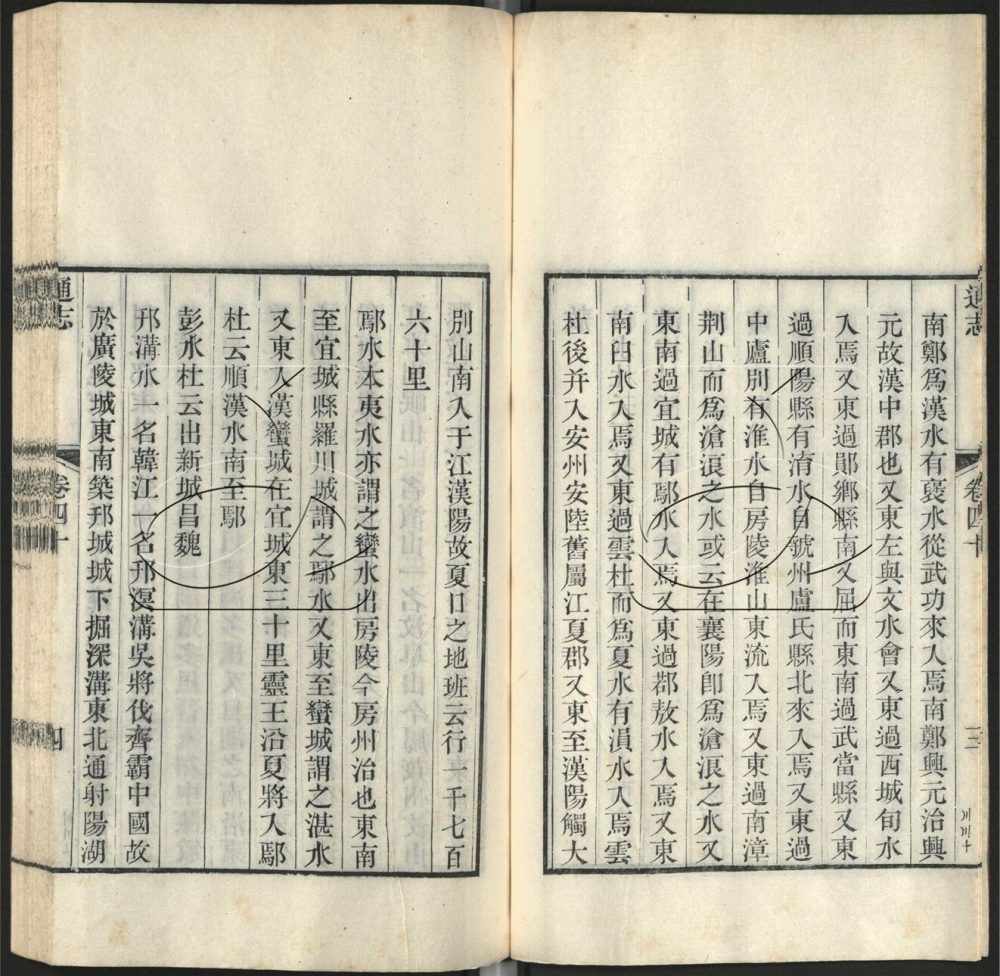 通志
卷四十
三
南鄭爲漢水有襃水從武功來入焉南鄭興元治興
元故漢中郡也又東左與文水會又東過西城旬水
入焉又東過鄖鄉縣南又屈而東南過武當縣又東
過順陽縣有淯水自虢州盧氏縣北來入焉又東過
中廬別有淮水自房陵淮山東流入焉又東過南漳
荆山而爲滄浪之水或云在襄陽卽爲滄浪之水又
東南過宜城有鄢水入焉又東過鄀敖水入焉又東
南臼水入焉又東過雲杜而爲夏水有溳水入焉雲
杜後并入安州安陸舊屬江夏郡又東至漢陽觸大
別山南入于江漢陽故夏口之地班云行一千七百
六十里
鄢水本夷水亦謂之蠻水出房陵今房州治也東南
至宜城縣羅川城謂之鄢水又東至蠻城謂之湛水
又東入漢蠻城在宜城東三十里靈王沿夏將入鄢
杜云順漢水南至鄢
彭水杜云出新城昌魏
邗溝水一名韓江一名邗溟溝吳將伐齊霸中國故
於廣陵城東南築邗城城下掘深溝東北通射陽湖
通志
卷四十
四